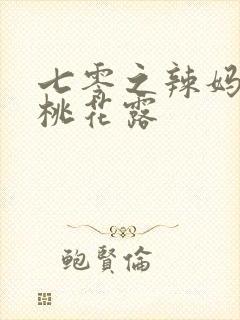 七零之辣妈
桃花露
鲍賢倫